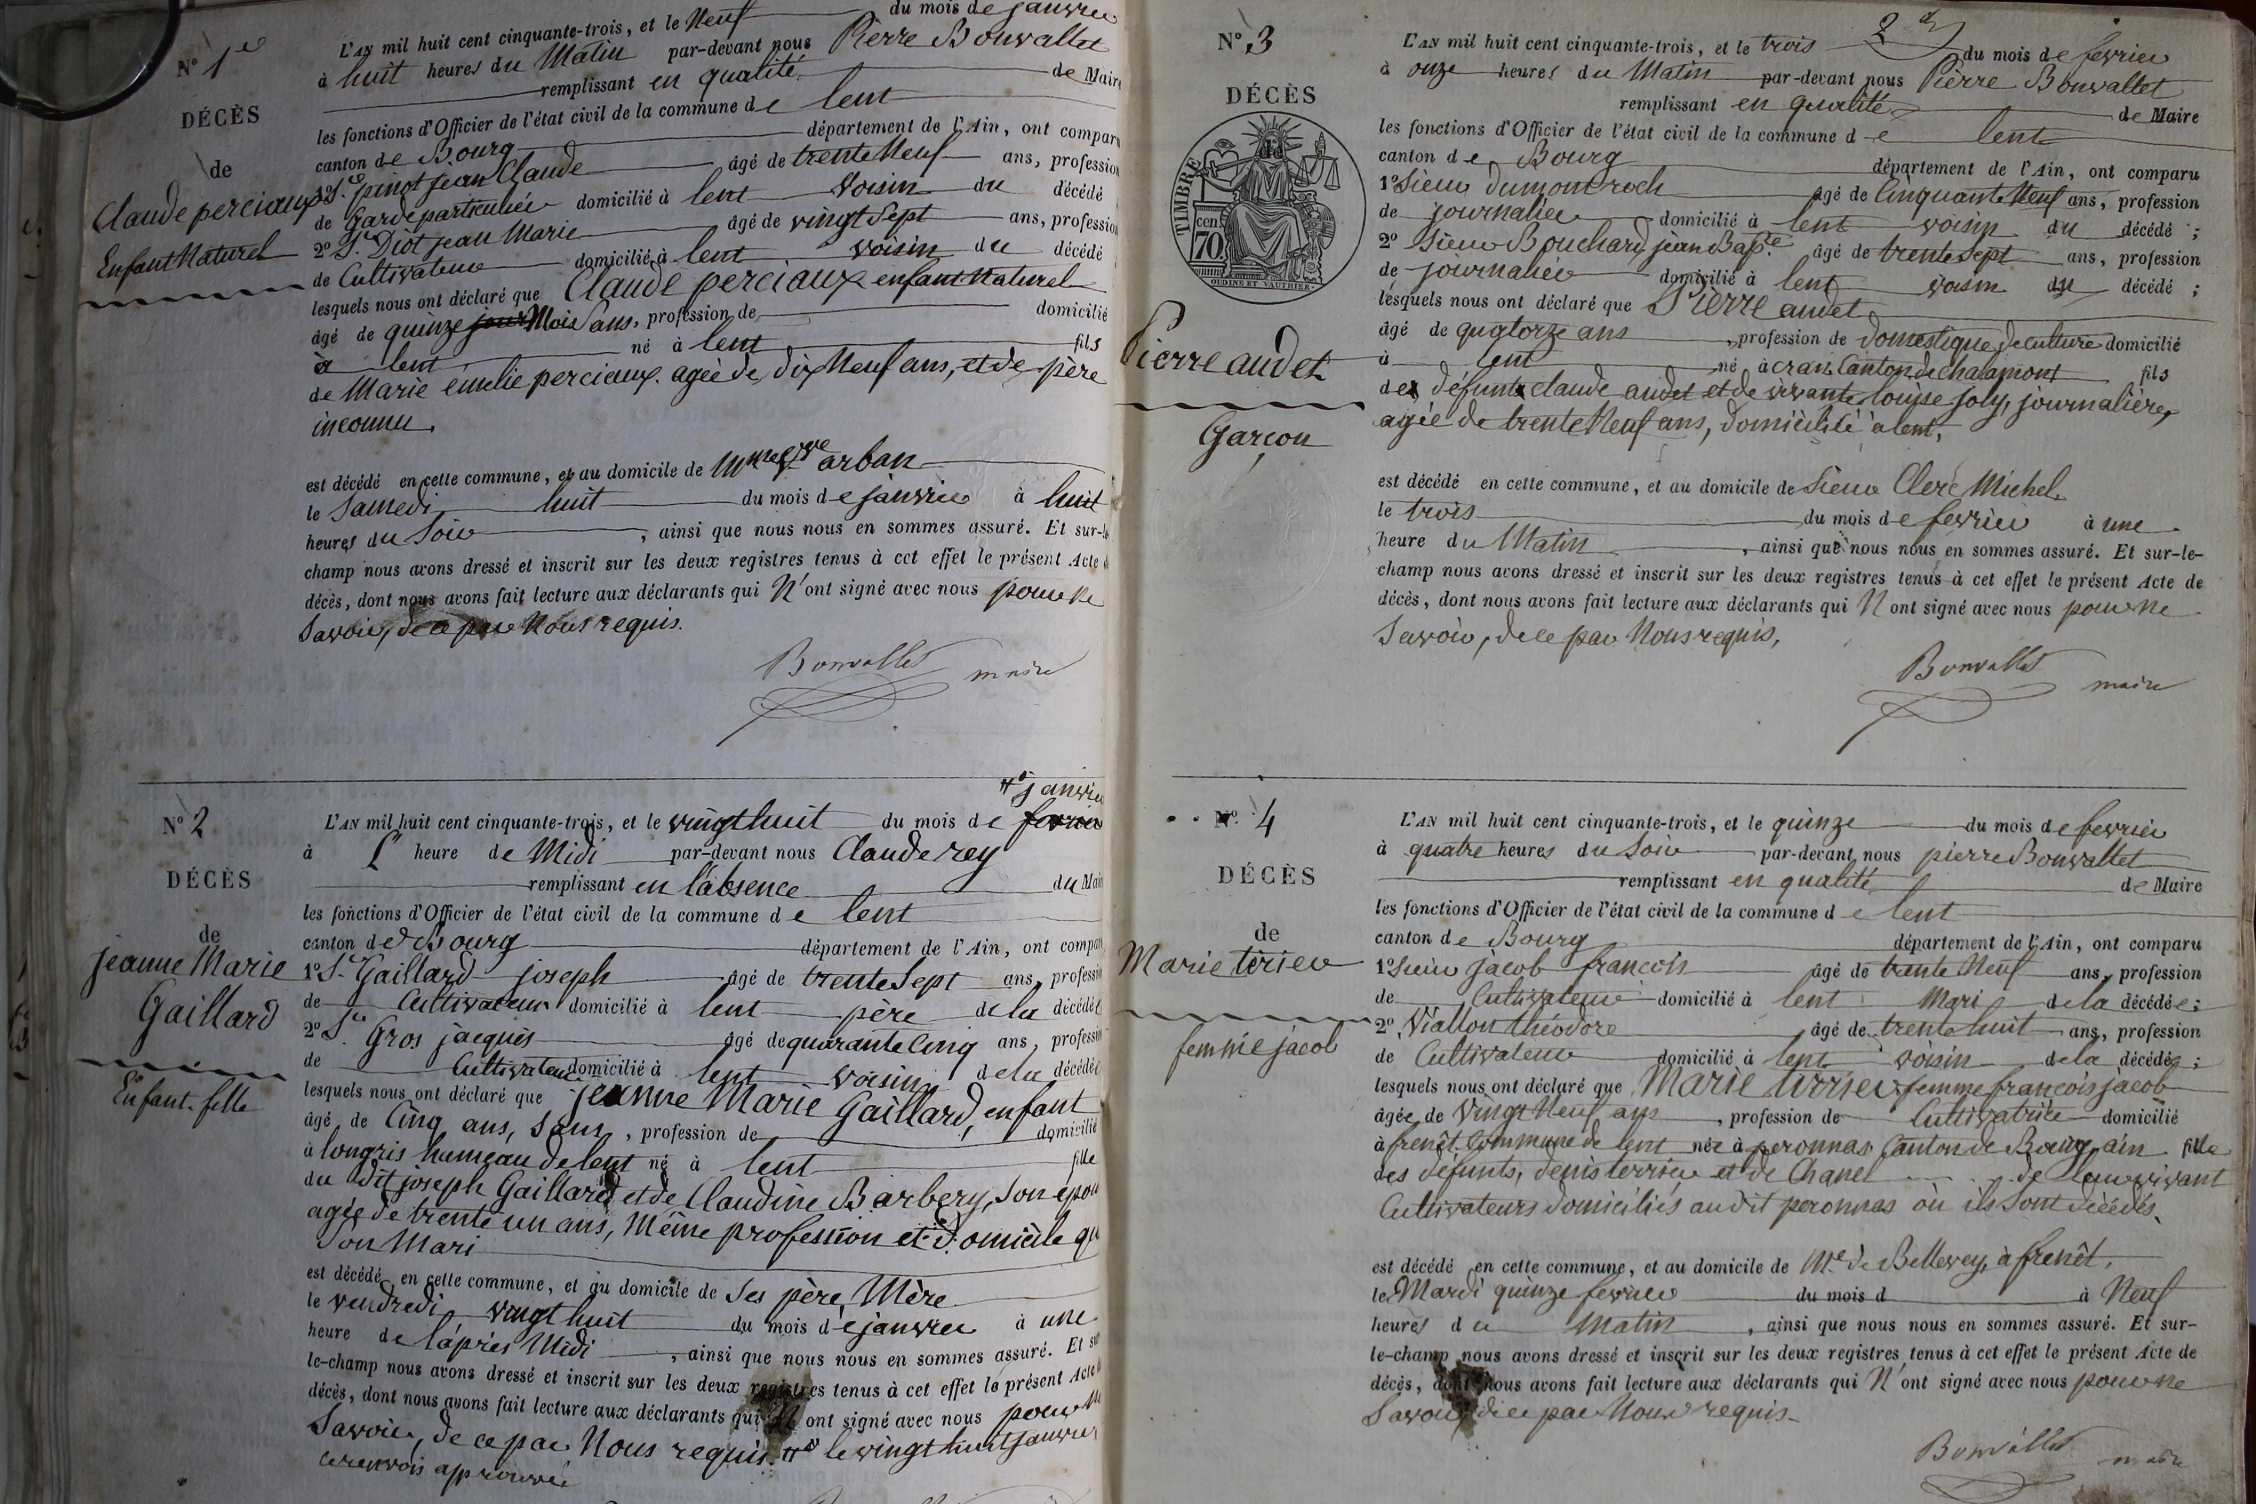 N° 1er
DÉCÈS
de
Claude perciaux
Enfant Naturel
L'AN mil huit cent cinquante-trois, et le Neuf du mois de janvier
à huit heures du Matin par-devant nous Pierre Bonvallet
remplissant en qualité de Maire
les fonctions d'Officier de l'état civil de la commune de lent
canton de Bourg département de l'Ain, ont comparu
1° Sr. pinot jean Claude âgé de trente Neuf ans, profession
de Garde particulier domicilié à lent Voisin du décédé
2° Sr. Diot jean Marie âgé de vingt Sept ans, profession
de Cultivateur domicilié à lent voisin du décédé
lesquels nous ont déclaré que Claude perciaux enfant Naturel
âgé de quinze jours Mois Sans, profession de domicilié
à lent né à lent fils
de Marie émelie perciaux agée de dix Neuf ans, et de père
inconnu.
est décédé en cette commune, et au domicile de Mme Vve arban
le Samedi huit du mois de janvier à huit
heures du Soir, ainsi que nous nous en sommes assuré. Et sur-le
champ nous avons dressé et inscrit sur les deux registres tenus à cet effet le présent Acte d
décès, dont nous avons fait lecture aux déclarants qui N'ont signé avec nous pour ne
Savoir, de ce par Nous requis.
Bonvallet maire
N° 2
DÉCÈS
de
jeanne Marie
Gaillard
Enfant fille
janvier
L'AN mil huit cent cinquante-trois, et le vingt huit du mois de fevrier
à l' heure de Midi par-devant nous Claude rey
remplissant en l'absence du Maire
les fonctions d'Officier de l'état civil de la commune de lent
canton de Bourg département de l'Ain, ont comparu
1° Sr. Gaillard joseph âgé de trente Sept ans, profession
de Cultivateur domicilié à lent père de la décédée
2° Sr. Gros jacques âgé de quarante Cinq ans, profession
de Cultivateur domicilié à lent voisin de la décédée
lesquels nous ont déclaré que jeanne Marie Gaillard, enfant
âgé de Cinq ans, sans, profession de domicilié
à longris hameau de lent né à lent fille
du dit joseph Gaillard et de Claudine Barbery, son épou
agée de trente un ans, Même profession et domicile qu
Son Mari
est décédé en cette commune, et au domicile de Ses père Mère
le vendredi vingt huit du mois de janvier à une
heure de l'après Midi, ainsi que nous nous en sommes assuré. Et sur
le-champ nous avons dressé et inscrit sur les deux registres tenus à cet effet le présent Acte d
décès, dont nous avons fait lecture aux déclarants qui N'ont signé avec nous pour ne
Savoir, de ce par Nous requis. le vingt huit janvier
ce renvois approuvé
2
N° 3
DÉCÈS
de
TIMBRE
70 cen
OUDINÉ ET VAUTHIER
Pierre audet
Garçon
L'AN mil huit cent cinquante-trois, et le trois du mois de fevrier
à onze heures du Matin par-devant nous Pierre Bonvallet
remplissant en qualité de Maire
les fonctions d'Officier de l'état civil de la commune de lent
canton de Bourg département de l'Ain, ont comparu
1° Sieur dumont roch âgé de Cinquante Neuf ans, profession
de journalier domicilié à lent voisin du décédé;
2° Sieur Bouchard jean Bapte. âgé de trente Sept ans, profession
de journalier domicilié à lent voisin du décédé;
lesquels nous ont déclaré que Pierre audet
âgé de quatorze ans, profession de domestique de culture domicilié
à lent né à crans Canton de chalamont fils
de défunt claude audet et de vivante louise joly, journalière,
agée de trente Neuf ans, domicilié à lent.
est décédé en cette commune, et au domicile de Sieur Clerc Michel
le trois du mois de fevrier à une
heure du Matin, ainsi que nous nous en sommes assuré. Et sur-le-
champ nous avons dressé et inscrit sur les deux registres tenus à cet effet le présent Acte de
décès, dont nous avons fait lecture aux déclarants qui N'ont signé avec nous pour ne
Savoir, de ce par Nous requis,
Bonvallet maire
N° 4
DÉCÈS
de
Marie terrier
femme jacob
L'AN mil huit cent cinquante-trois, et le quinze du mois de fevrier
à quatre heures du Soir par-devant nous pierre Bonvallet
remplissant en qualité de Maire
les fonctions d'Officier de l'état civil de la commune de lent
canton de Bourg département de l'Ain, ont comparu
1° Sieur jacob françois âgé de trente Neuf ans, profession
de Cultivateur domicilié à lent Mari de la décédée;
2° Viallon théodore âgé de trente huit ans, profession
de Cultivateur domicilié à lent voisin de la décédée;
lesquels nous ont déclaré que Marie terrier femme françois jacob
âgée de Vingt Neuf ans, profession de Cultivatrice domicilié
à frenêt Commune de lent née à peronnas Canton de Bourg, ain fille
des défunts, denis terrier et de Chanel de leur vivant
Cultivateurs domiciliés au dit peronnas où ils Sont décédés.
est décédé en cette commune, et au domicile de Mr. de Bellevey, à frenêt,
le Mardi quinze fevrier du mois d à Neuf
heures du Matin, ainsi que nous nous en sommes assuré. Et sur-
le-champ nous avons dressé et inscrit sur les deux registres tenus à cet effet le présent Acte de
décès, dont nous avons fait lecture aux déclarants qui N'ont signé avec nous pour ne
Savoir, de ce par Nous requis.
Bonvallet maire